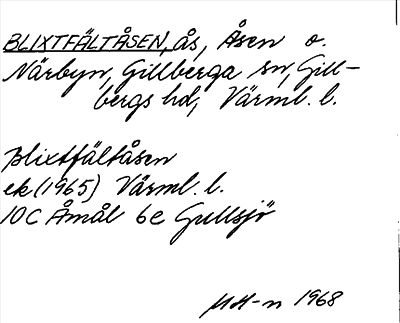 BLIXTFÄLTÅSEN, ås, Åsen o.
Närbyn, Gillberga sn, Gill-
bergs hd, Värml. l.
Blixtfältåsen
ek (1965) Värml. l.
10C Åmål 6e Gullsjö
MH-n 1968